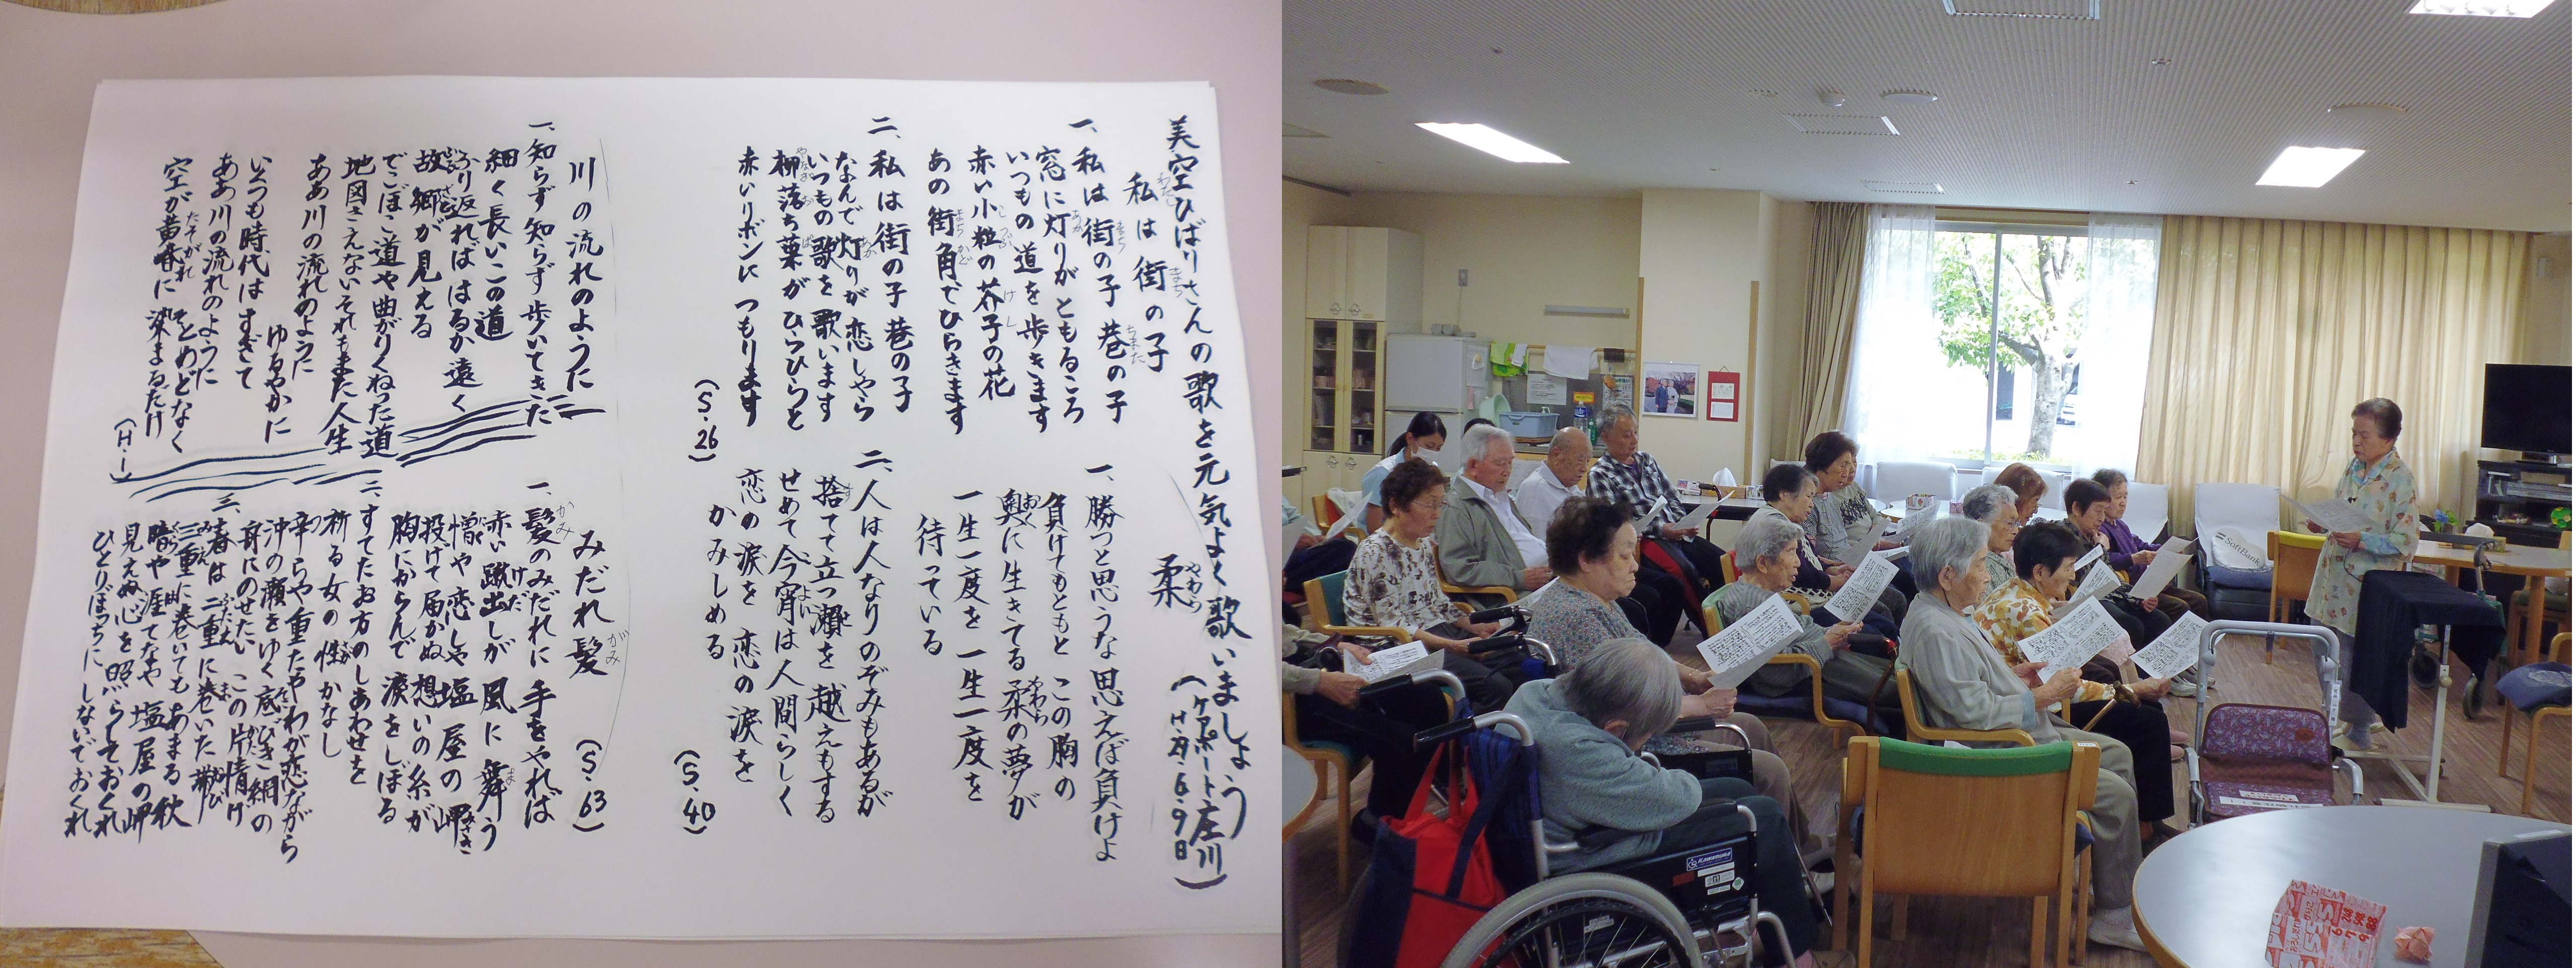 美空ひばりさんの歌を元気よく歌いましょう
（ケアポート庄川 H.29.6.9日）
私は街の子
一、私は街の子 巷の子
窓に灯りがともるころ
いつもの道を歩きます
赤い小粒の芥子の花
あの街角でひらきます
二、私は街の子 巷の子
なんで灯りが恋しやら
いつもの歌を歌います
柳落ち葉がひらひらと
赤いリボンに つもります
（S.26）
柔
一、勝つと思うな 思えば負けよ
負けてもともと この胸の
奥に生きてる 柔の夢が
一生一度を 一生一度を
待っている
二、人は人なりの のぞみもあるが
捨てて立つ瀬を 越えもする
せめて今宵は 人間らしく
恋の涙を 恋の涙を
かみしめる
（S.40）
川の流れのように
一、知らず知らず 歩いてきた
細く長いこの道
ふり返れば はるか遠く
故郷が見える
でこぼこ道や 曲がりくねった道
地図さえない それもまた人生
ああ川の流れのように
ゆるやかに
いくつも時代は すぎて
ああ川の流れのように
とめどなく
空が黄昏に 染まるだけ
（H.1）
みだれ髪
（S.63）
一、髪のみだれに 手をやれば
赤い蹴出しが 風に舞う
憎や恋しや 塩屋の岬
投げて届かぬ 想いの糸が
胸にからんで 涙をしぼる
二、すてたお方の しあわせを
祈る女の 性かなし
辛らや重たや わが恋ながら
沖の瀬をゆく 底びき網の
舟にのせたい この片情け
三、春は二重に 巻いた帯
三重に巻いても あまる秋
暗や涯てなや 塩屋の岬
見えぬ心を 照らしておくれ
ひとりぼっちに しないでおくれ
SoftBank
KAWAMURA